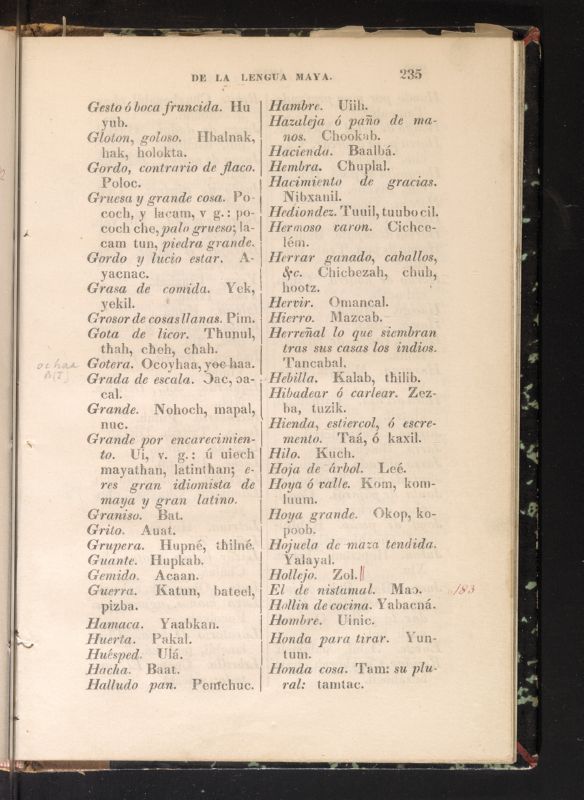 DE LA LENGUA MAYA. 235
Gesto ó boca fruncida. Hu
yub.
Gloton, goloso. Hbalnak,
hak, holokta.
Gordo, contrario de flaco.
Poloc.
Gruesa y grande cosa. Po-
coch, y lacam, v g.: po-
coch che, palo grueso; la-
cam tun, piedra grande.
Gordo y lucio estar. A-
yacnac.
Grasa de comida. Yek,
yekil.
Grosor de cosas llanas. Pim.
Gota de licor. Thunul,
thah, cħeħ, cħah.
Gotera. Ocoyhaa, yoc haa.
Grada de escala. Ɔac, ɔa-
cal.
Grande. Nohoch, mapal,
nuc.
Grande por encarecimien-
to. Uí, v. g.: ú uiech
mayathan, latinthan; e-
res gran idiomista de
maya y gran latino.
Graniso. Bat.
Grito. Auat.
Grupera. Hupné, thilné.
Guante. Hupkab.
Gemido. Acaan.
Guerra. Katun, bateel,
pizba.
Hamaca. Yaabkan.
Huerta. Pakal.
Huésped. Ulá.
Hacha. Baat.
Halludo pan. Pemchuc.
Hambre. Uiih.
Hazaleja ó paño de ma-
nos. Chookab.
Hacienda. Baalbá.
Hembra. Chuplal.
Hacimiento de gracias.
Nibxanil.
Hediondez. Tuuil, tuubocil.
Hermoso varon. Cichce-
lém.
Herrar ganado, caballos,
&c. Chicbezah, chuh,
hootz.
Hervir. Omancal.
Hierro. Mazcab.
Herreñal lo que siembran
tras sus casas los indios.
Tancabal.
Hebilla. Kalab, thilib.
Hibadear ó carlear. Zez-
ba, tuzik.
Hienda, estiercol, ó escre-
mento. Taá, ó kaxil.
Hilo. Kuch.
Hoja de árbol. Leé.
Hoya ó valle. Kom, kom-
luum.
Hoya grande. Okop, ko-
poob.
Hojuela de maza tendida.
Yalayal.
Hollejo. Zol.
El de nistamal. Maɔ. 183
Hollin de cocina. Yabacná.
Hombre. Uinic.
Honda para tirar. Yun-
tum.
Honda cosa. Tam: su plu-
ral: tamtac.
ochaa